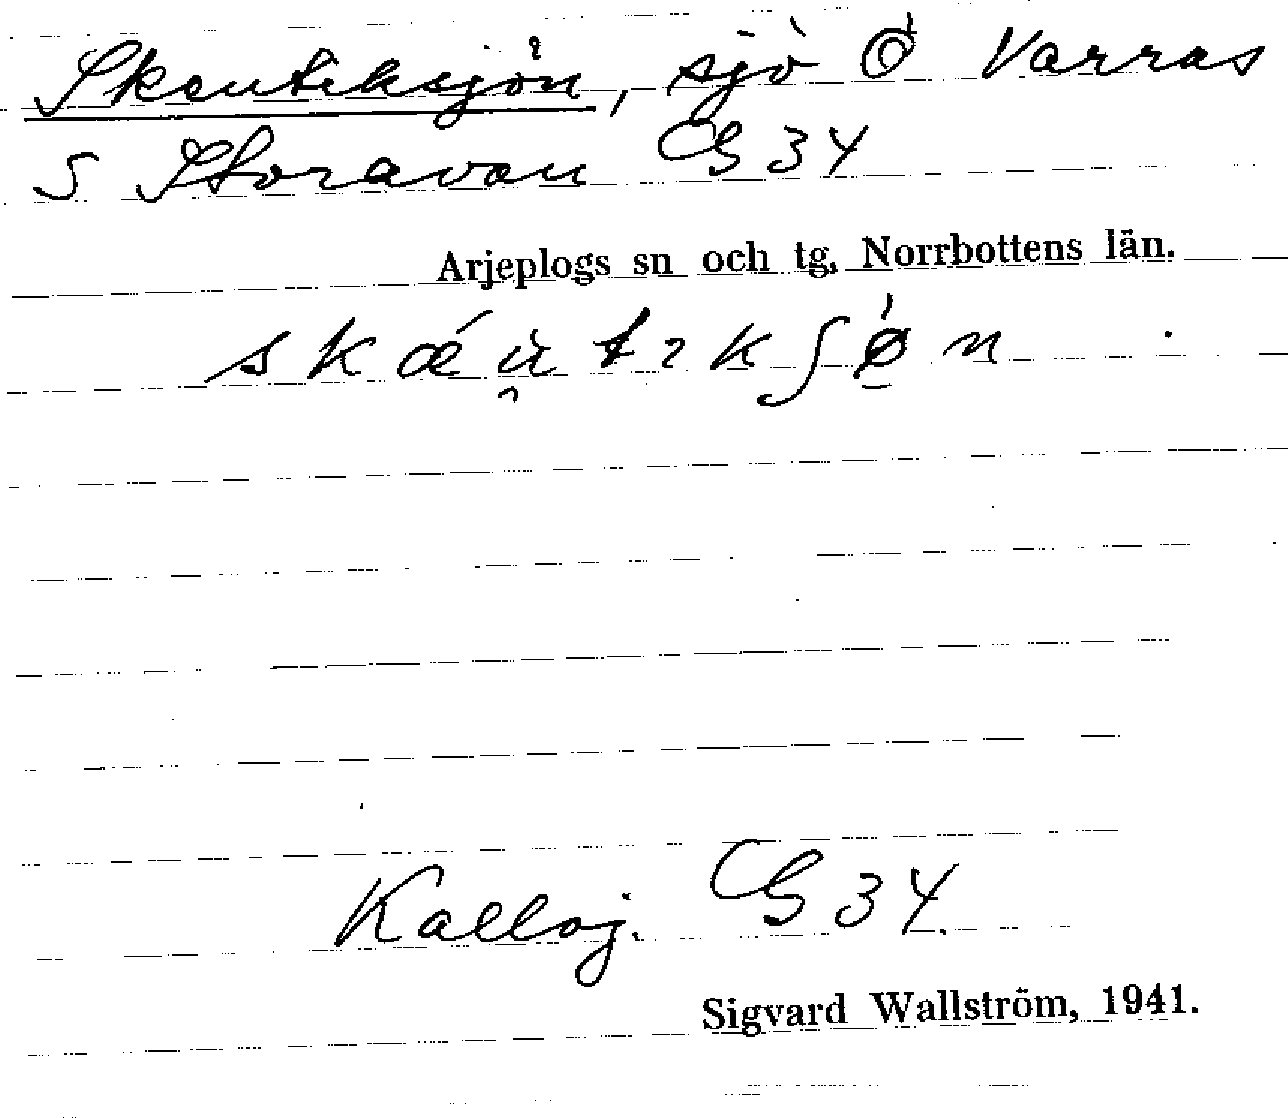 Skeuteksjön, sjö Ö Varras
S Storavan GS 34
Arjeplogs sn och tg, Norrbottens län.
skǽu̯̇tɿkʃø̱̇n
Kalloj. GS 34.
Sigvard Wallström, 1941.